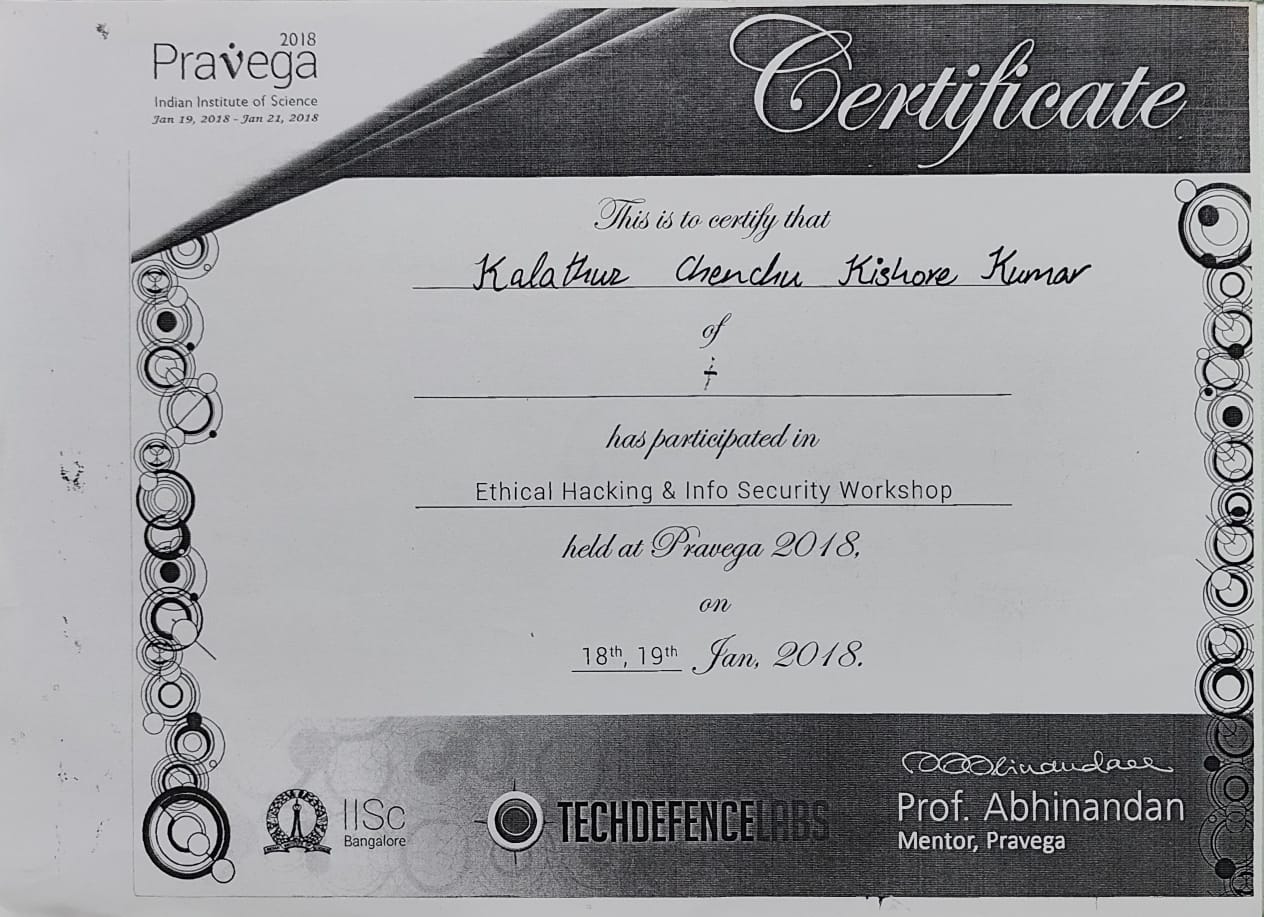 2018
Pravega
Indian Institute of Science
Jan 19, 2018 - Jan 21, 2018
Certificate
This is to certify that
Kalathur Chenchu Kishore Kumar
of
has participated in
Ethical Hacking & Info Security Workshop
held at Pravega 2018,
on
18th, 19th Jan, 2018.
Abhinandan
IISc
Bangalore
TECHDEFENCELABS
Prof. Abhinandan
Mentor, Pravega